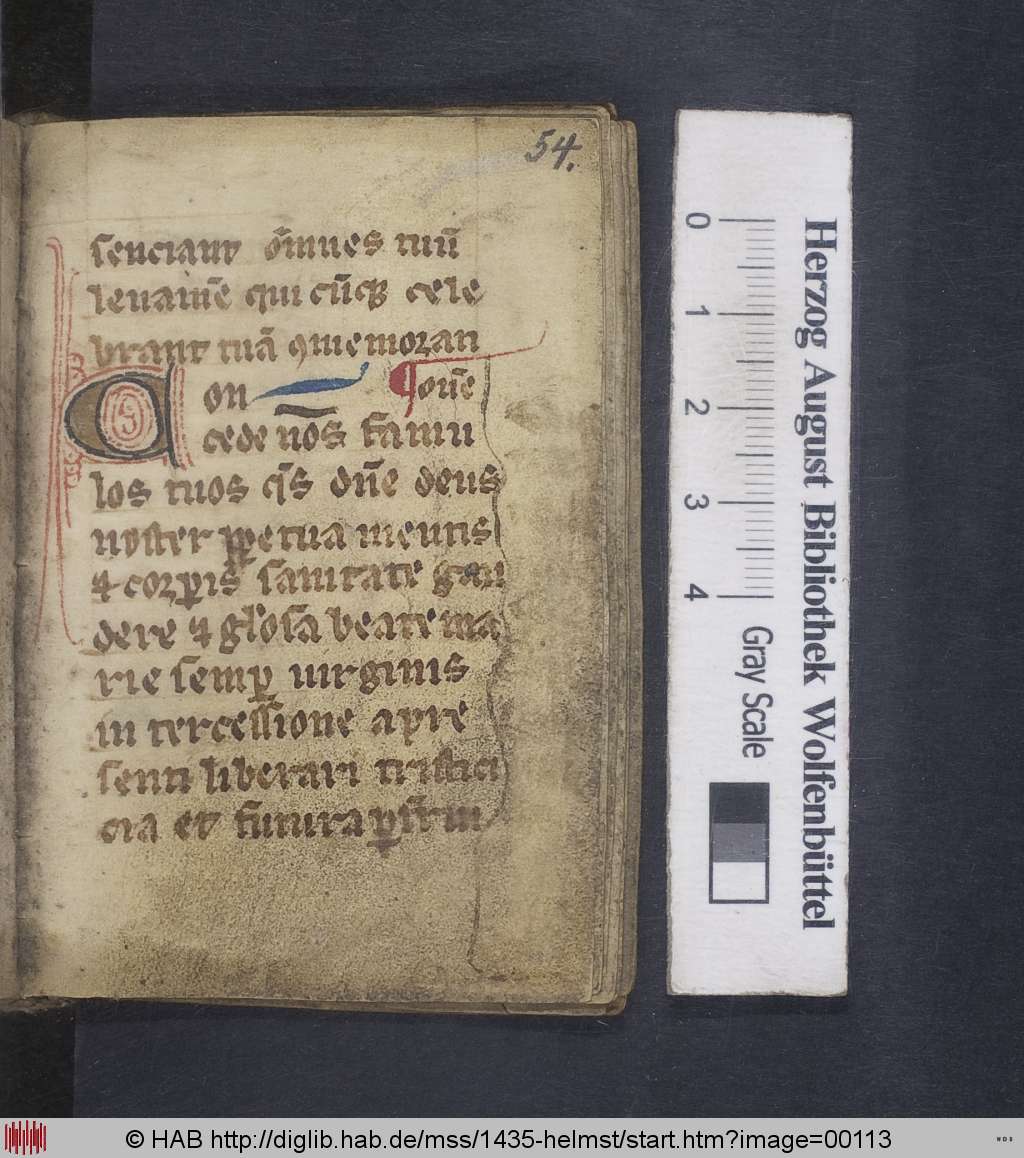 54.
senciant om̅nes tuū
leuam̄e qui cūq; cele
brant tuā ꝯmemoran
C on ¶ oūe
cede nōs famu
los tuos q̄s dn̄e deus
noster ꝑpetua mentis
⁊ corꝑis sanitate gau
dere ⁊ gl̄osa beate ma
rie semꝑ uirginis
in tercessione a pre
senti liberari tristici
cia et futura ꝑfrui
Herzog August Bibliothek Wolfenbüttel
0 1 2 3 4
Gray Scale
© HAB http://diglib.hab.de/mss/1435-helmst/start.htm?image=00113